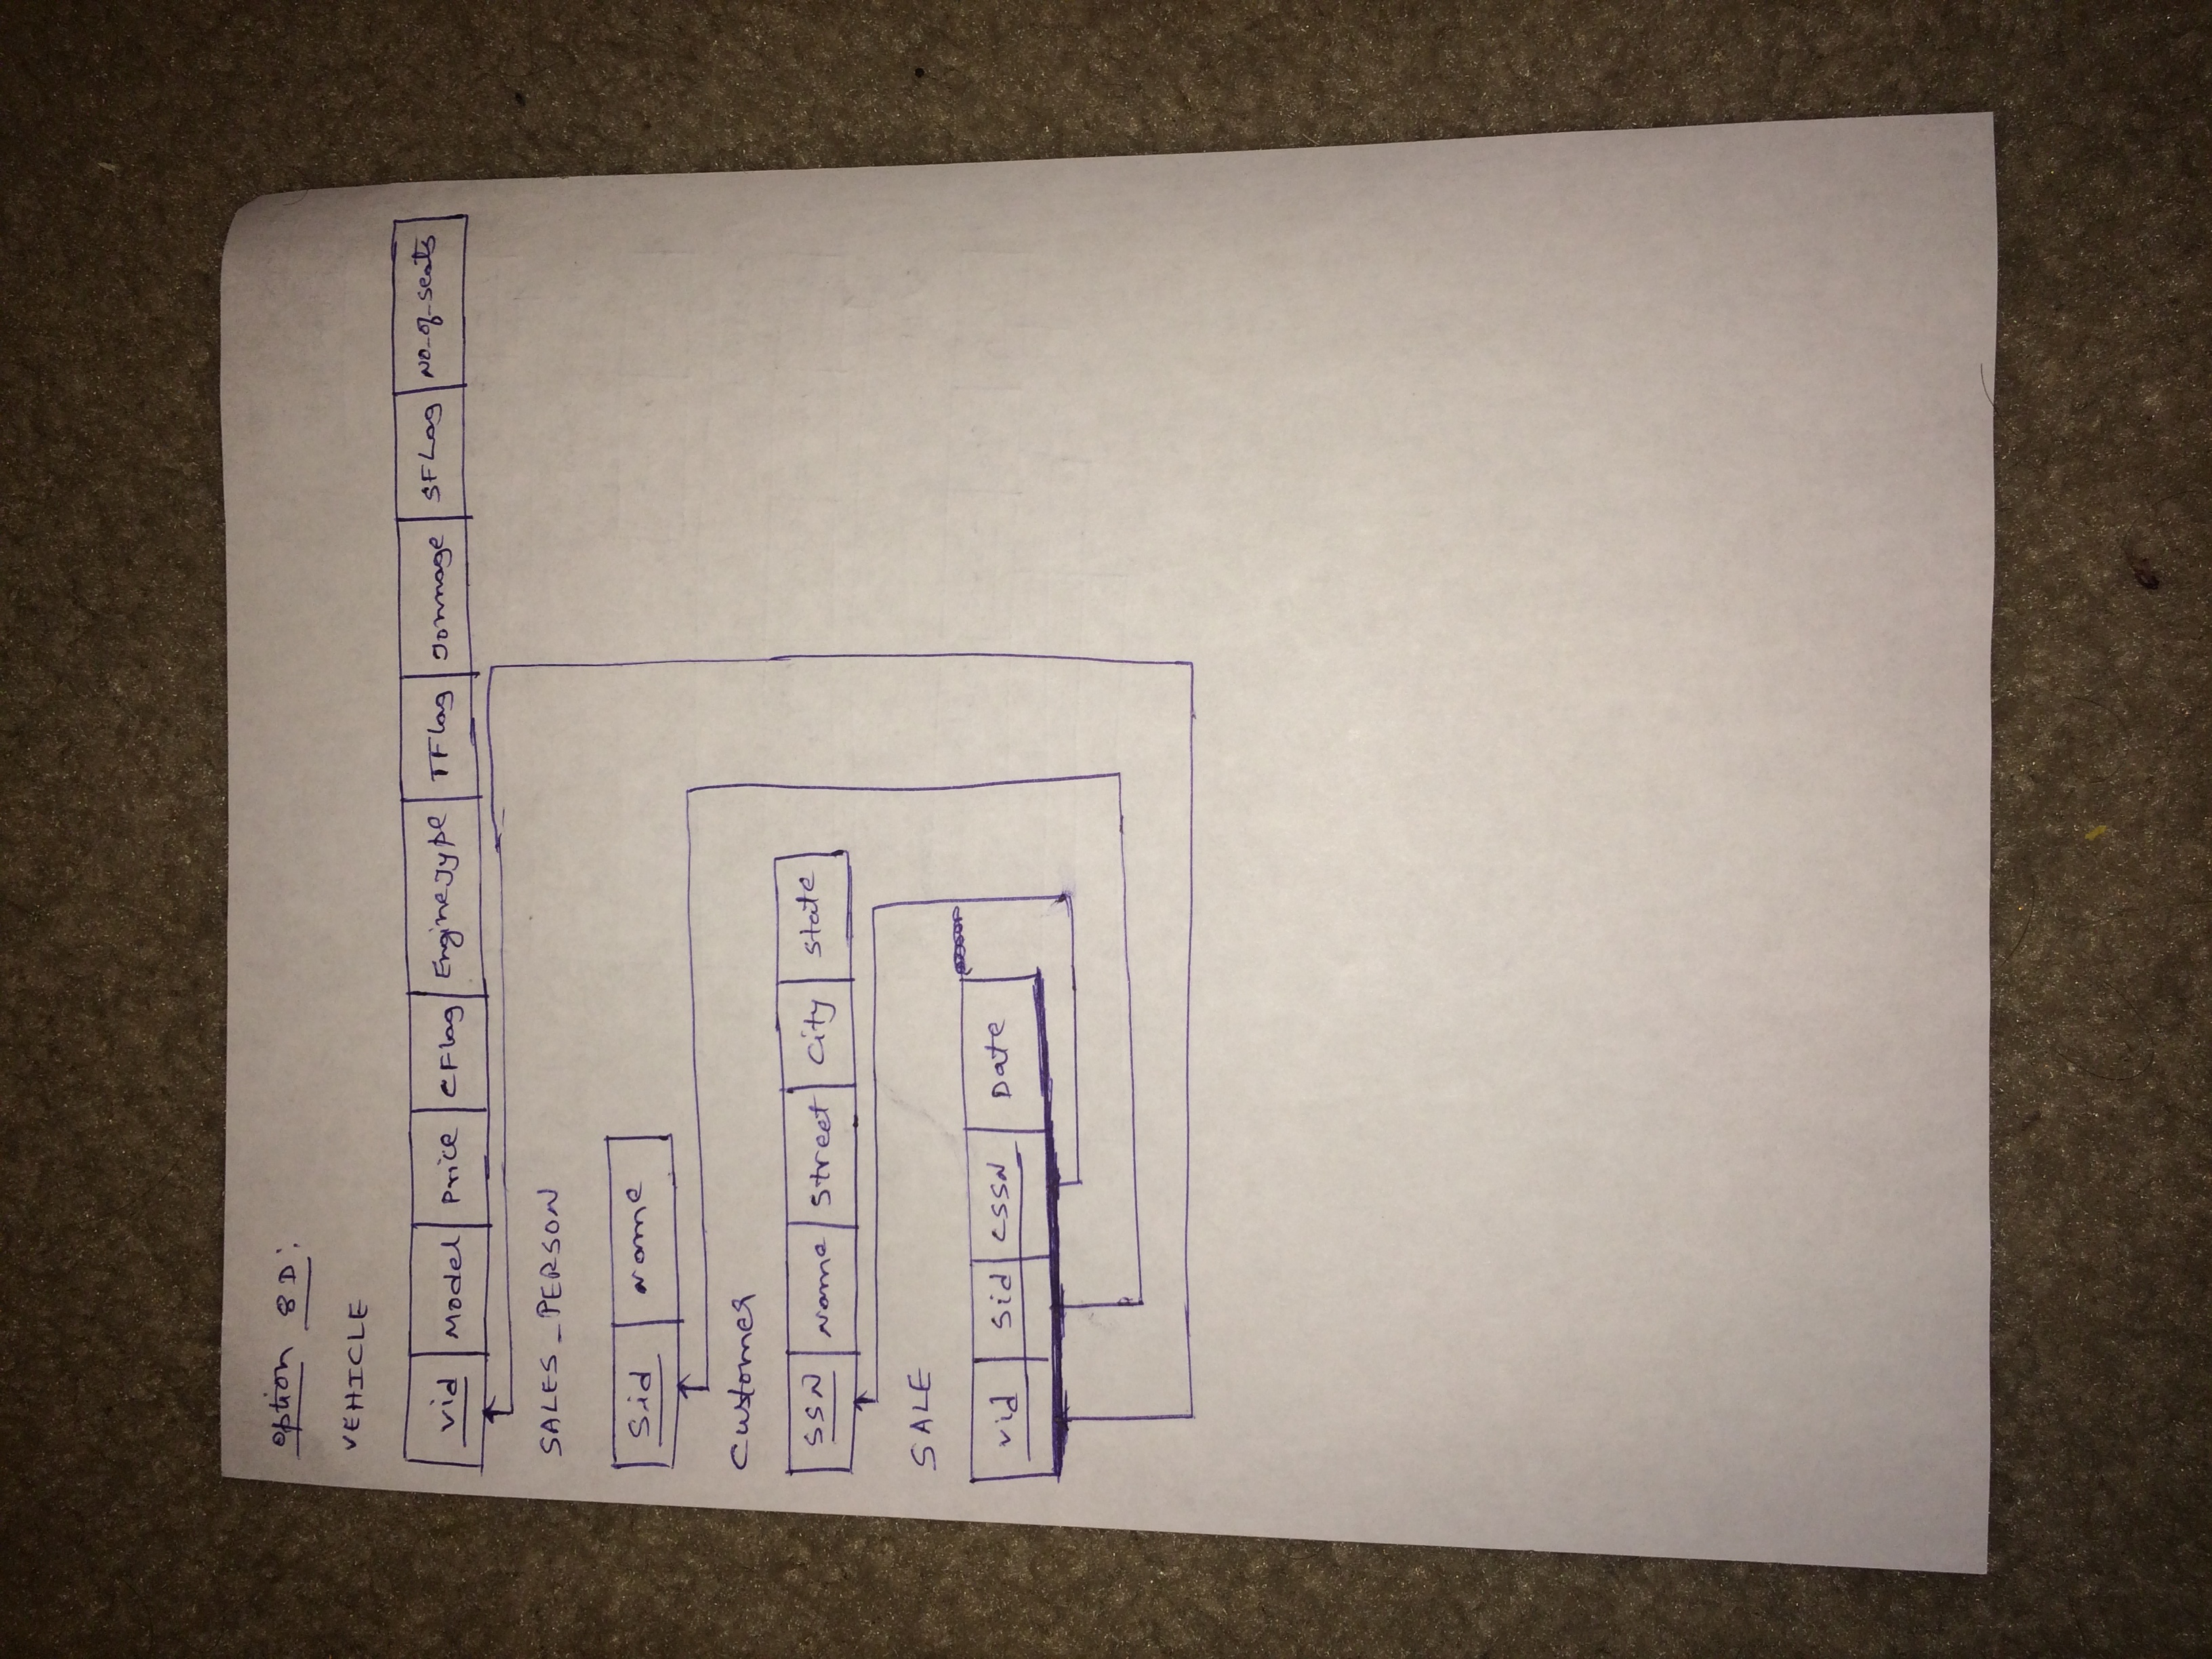 Option 8D:
VEHICLE
Vid Model Price CFlag EngineType TFlag Tonnage SFLag No-of-seats
SALES_PERSON
Sid Name
Customer
SSN Name Street City State
SALE
Vid Sid CSSN Date